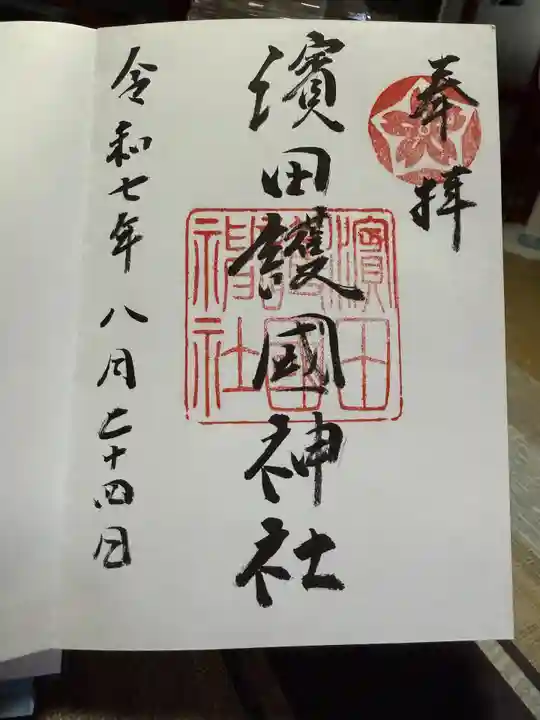 奉拝
濱田護國神社
濱田
護國
神社
令和七年八月二十四日